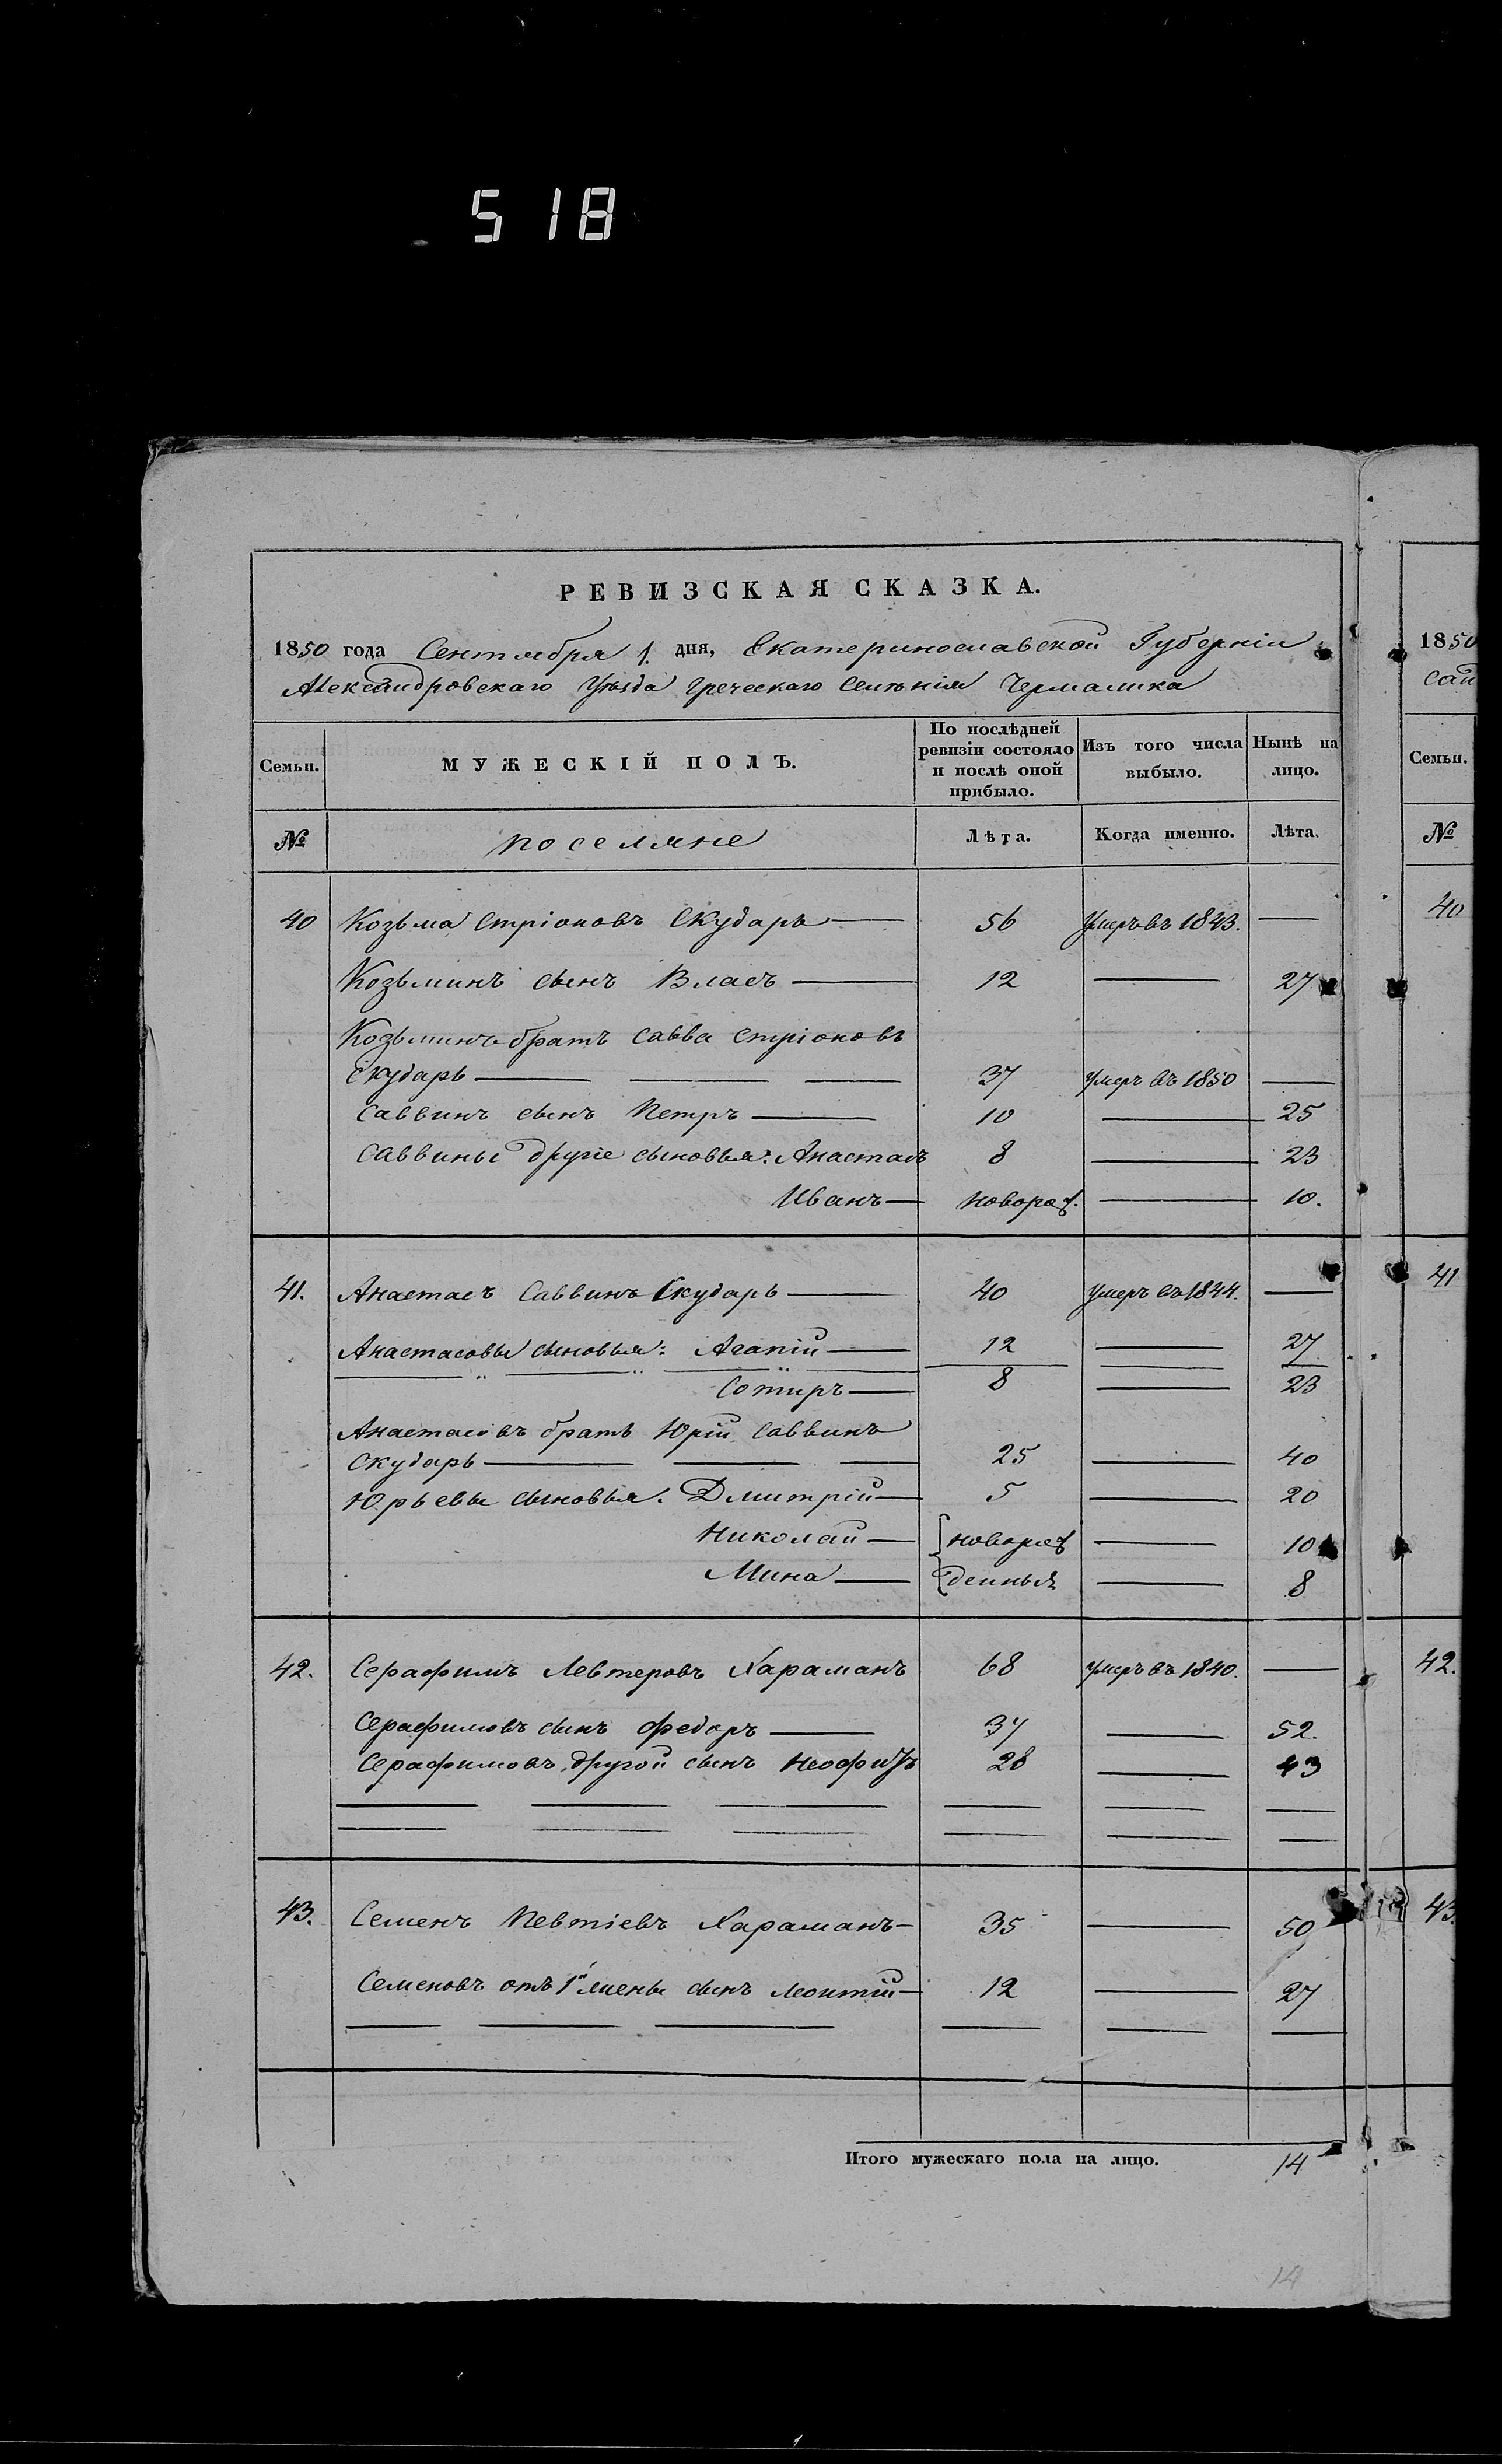 518
РЕВИЗСКАЯ СКАЗКА.
1850 года Сентября 1. дня, Екатеринославской Губерніи
Александровскаго Уѣзда Греческаго Селенія Чермалика
Семьи. МУЖЕСКІЙ ПОЛЪ. По послѣдней ревизіи состояло и послѣ оной прибыло. Изъ того числа выбыло. Нынѣ на лицо.
№ поселяне Лѣта. Когда именно. Лѣта.
40 Козьма Стріоновъ Скударь 56 Умеръ въ 1843.
Козьминъ сынъ Власъ 12 27
Козьминъ братъ Савва Стріоновъ
Скударь 37 Умеръ въ 1850
Саввинъ сынъ Петръ 10 25
Саввины другіе сыновья: Анастасъ 8 23
Иванъ новорож. 10.
41. Анастасъ Саввинъ Скударь 40 Умеръ въ 1844.
Анастасовы сыновья: Агапій 12 27
Сотиръ 8 23
Анастасовъ братъ Юрій Саввинъ
Скударь 25 40
Юрьевы сыновья: Дмитрій 5 20
Николай новорож 10
Мина денные 8
42. Серафимъ Левтеровъ Хараманъ 68 Умеръ въ 1840.
Серафимовъ сынъ Федоръ 37 52.
Серафимовъ другой сынъ Неофитъ 28 43
43. Семенъ Певтіевъ Хараманъ 35 50
Семеновъ отъ 1й жены сынъ Леонтій 12 27
Итого мужескаго пола на лицо. 14
14
1850
Сан
Семьи.
№
40
41
42.
43.